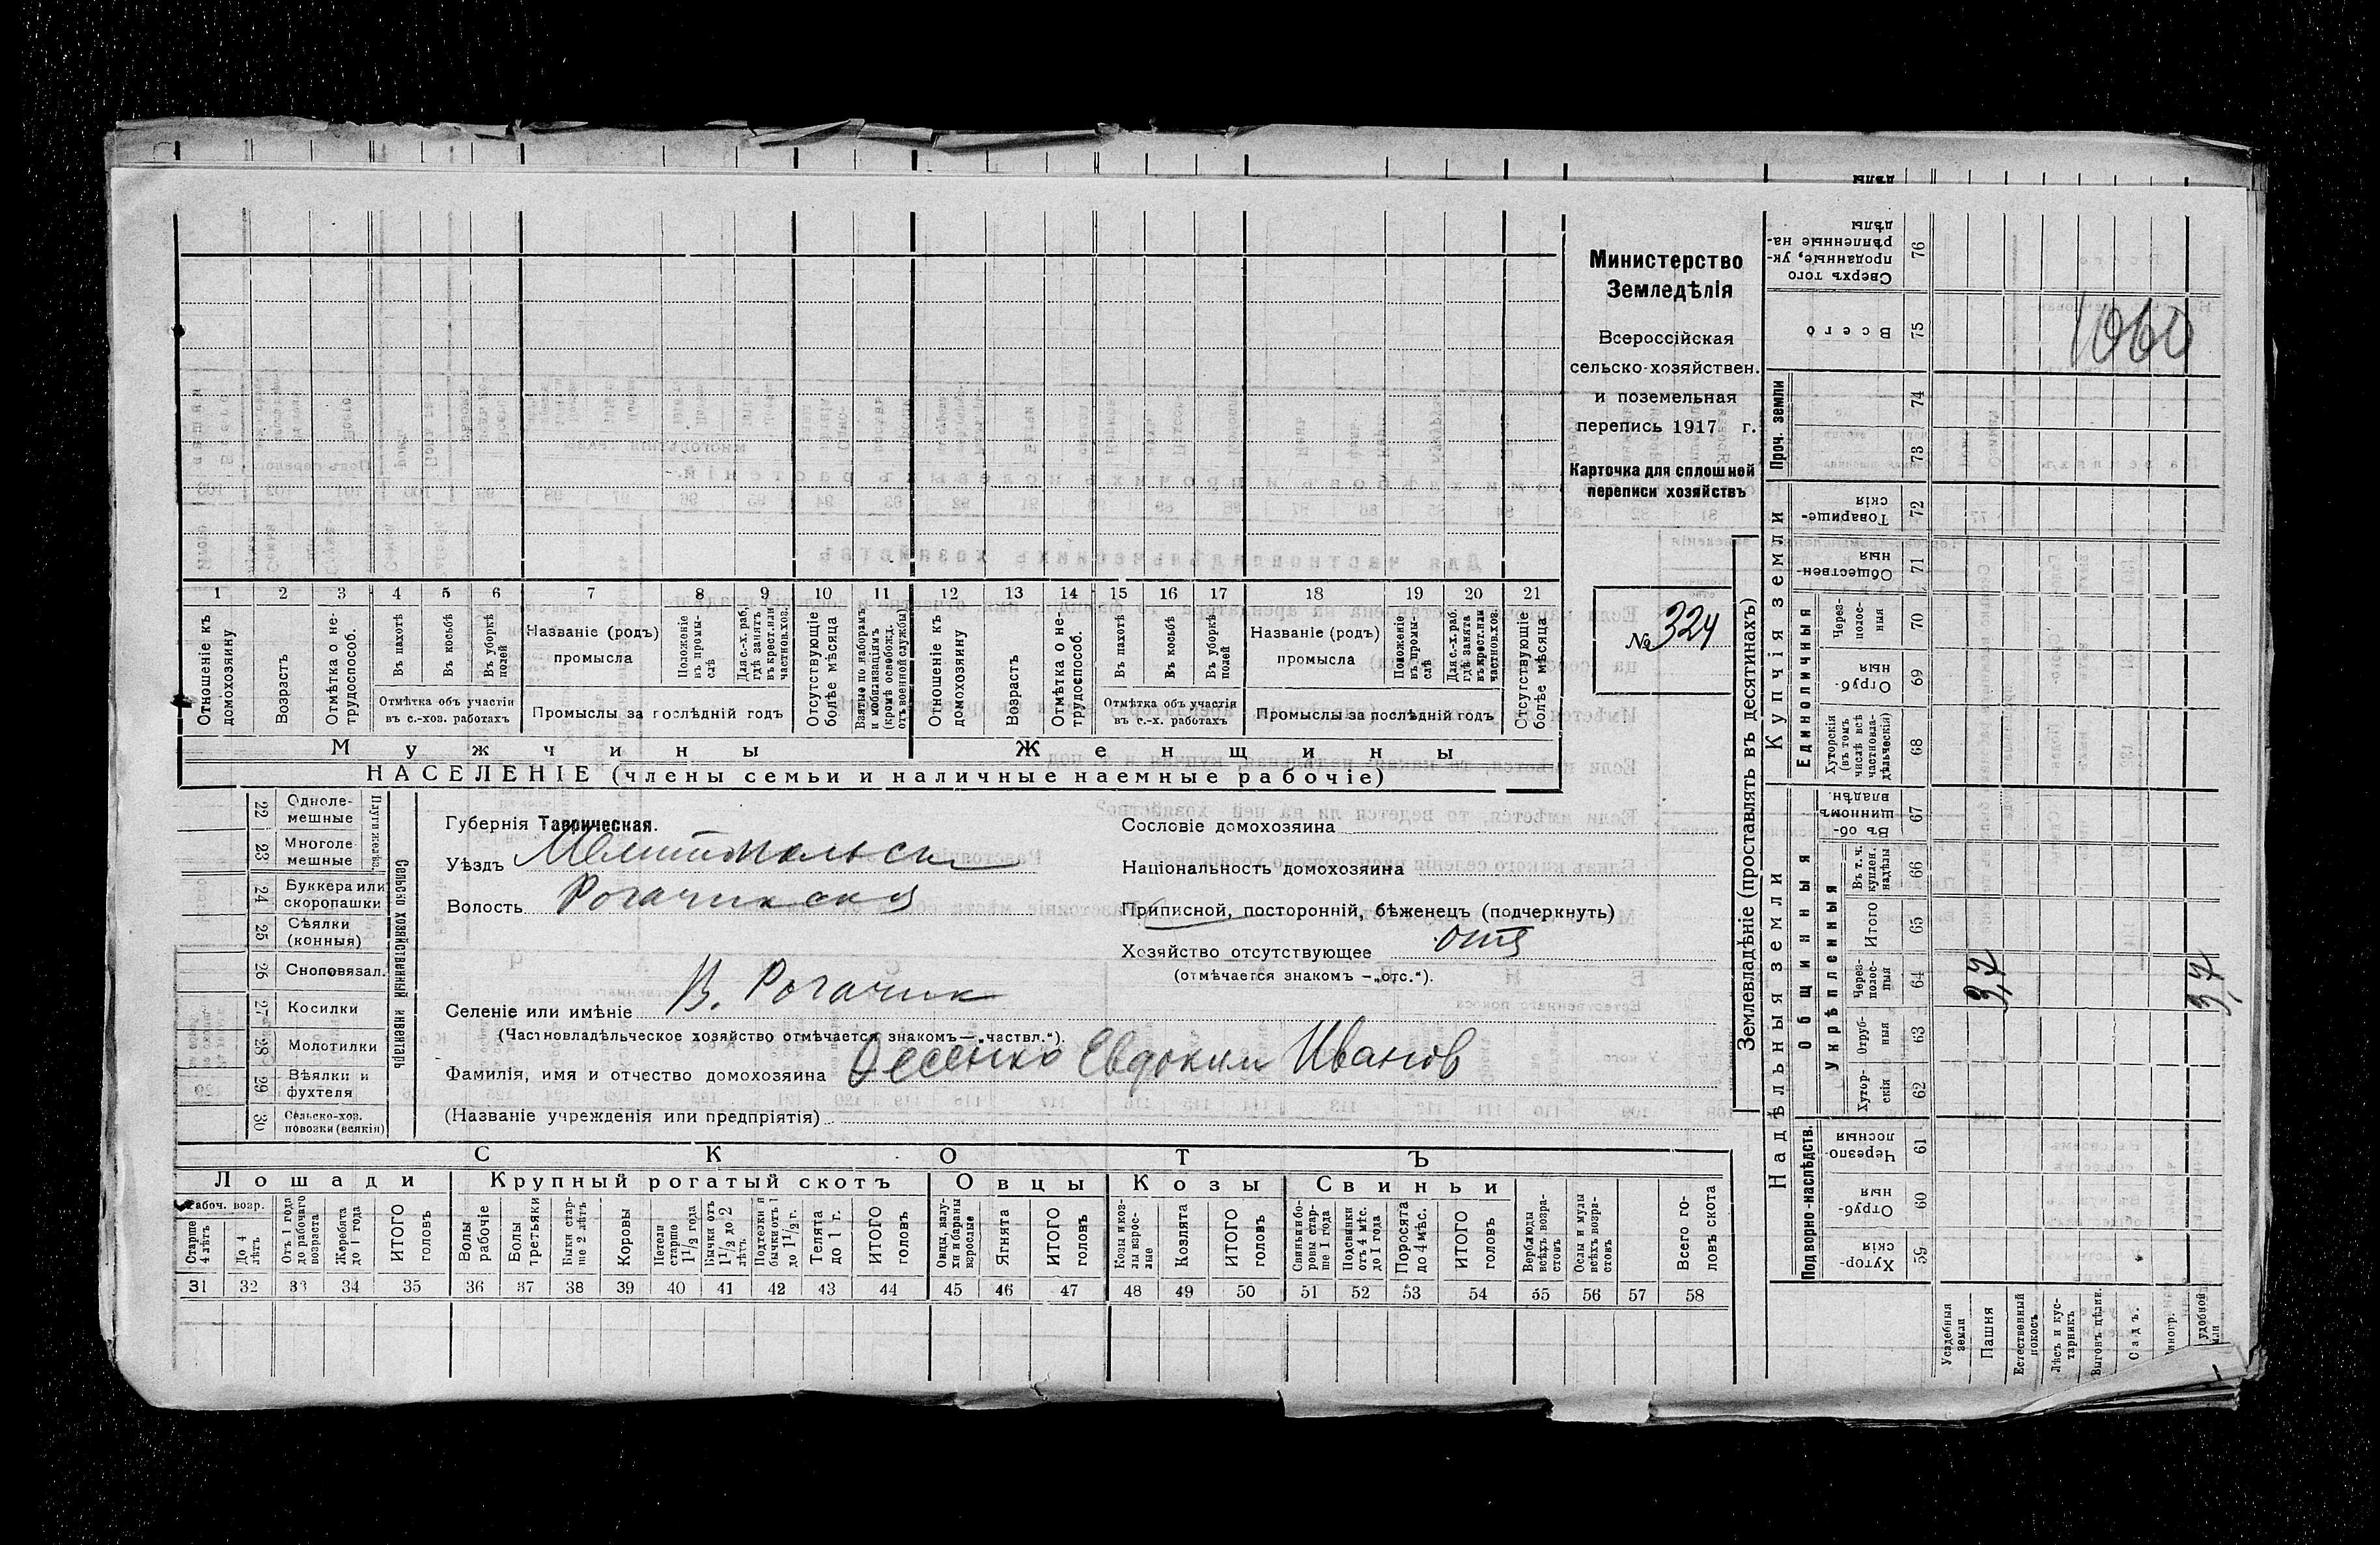 Министерство
Земледѣлія
Всероссійская
сельско-хозяйствен.
и поземельная
перепись 1917 г.
Карточка для сплошной
переписи хозяйствъ
№ 324
1060
1 2 3 4 5 6 7 8 9 10 11 12 13 14 15 16 17 18 19 20 21
Отношеніе къ домохозяину
Возрастъ
Отмѣтка о не-трудоспособ.
Въ пахотѣ
Въ косьбѣ
Въ уборкѣ полей
Отмѣтка объ участіи въ с.-хоз. работахъ
Названіе (родъ) промысла
Положеніе въ промы-слѣ
Для с.-х. раб, гдѣ занятъ въ крест. или частнов. хоз.
Промыслы за послѣдній годъ
Отсутствующіе болѣе мѣсяца
Взятые по наборамъ и мобилизаціямъ (кромѣ освобожд. отъ военной службы)
Отношеніе къ домохозяину
Возрастъ
Отмѣтка о не-трудоспособ.
Въ пахотѣ
Въ косьбѣ
Въ уборкѣ полей
Отмѣтка объ участіи въ с.-х. работахъ
Названіе (родъ) промысла
Положеніе въ промы-слѣ
Для с.-х. раб. гдѣ занята въ крест. или частнов. хоз.
Промыслы за послѣдній годъ
Отсутствующіе болѣе мѣсяца
Мужчины Женщины
НАСЕЛЕНІЕ (члены семьи и наличные наемные рабочіе)
22 Одноле-мешные
23 Многоле мешные
24 Буккера или скоропашки
25 Сѣялки (конныя)
26 Сноповязал.
27 Косилки
28 Молотилки
29 Вѣялки и фухтеля
30 Сельско-хоз. повозки (всякія)
Плуги желѣз.
Сельско хозяйственный инвентарь
Губернія Таврическая.
Уѣздъ Мелитопольск
Волость Рогачикская
Селеніе или имѣніе В. Рогачик
(Частновладѣльческое хозяйство отмѣчается знакомъ—„частвл.“).
Фамилія, имя и отчество домохозяина Евдоким Иванов
(Названіе учрежденія или предпріятія)
Сословіе домохозяина
Національность домохозяина
Приписной, посторонній, бѣженецъ (подчеркнуть)
Хозяйство отсутствующее
(отмѣчается знакомъ —„отс.“).
СКОТЪ
Лошади Крупный рогатый скотъ Овцы Козы Свиньи
Рабоч. возр.
Старше 4 лѣтъ
До 4 лѣтъ
Отъ 1 года до рабочаго возраста
Жеребята до 1 года
ИТОГО головъ
Волы рабочіе
Волы третьяки
Быки стар-ше 2 лѣтъ
Коровы
Нетели старше 1 1/2 года
Бычки отъ 1 1/2 до 2 лѣтъ
Подтелки и бычки отъ 1 до 1 1/2 г.
Телята до 1 г.
ИТОГО головъ
Овцы, валу-хи и бараны взрослые
Ягнята
ИТОГО головъ
Козы и коз-лы взрос-лые
Козлята
ИТОГО головъ
Свиньи и бо-ровы стар-ше 1 года
Подсвинки отъ 4 мѣс. до 1 года
Поросята до 4 мѣс.
ИТОГО головъ
Верблюды всѣхъ возра-стовъ
Ослы и мулы всѣхъ возра-стовъ
Всего го-ловъ скота
31 32 33 34 35 36 37 38 39 40 41 42 43 44 45 46 47 48 49 50 51 52 53 54 55 56 57 58
Землевладѣніе (проставлять въ десятинахъ)
Купчія земли
Проч. земли
Единоличныя
Надѣльныя земли
Общинныя
Укрѣпленныя
Подворно-наслѣдств.
Сверхъ того проданные, ук-рѣпленные на-дѣлы 76
Всего 75
74
73
Товарище-скія 72
Обществен-ныя 71
Через-полос-ныя 70
Отруб-ныя 69
Хуторскія (въ томъ числѣ всѣ частновла-дѣльческія) 68
Въ об-щинномъ владѣн. 67
Въ т. ч. купчен. надѣлы 66
Итого 65
Через-полос-ныя 64 3,7 3,7
Отруб-ныя 63
Хутор-скія 62
Черезпо-лосныя 61
Отруб-ныя 60
Хутор-скія 59
Усадебныя земли
Пашня
Естественный покосъ
Лѣсъ и кус-тарникъ
Выгонъ цѣлин.
Садъ.
удобной